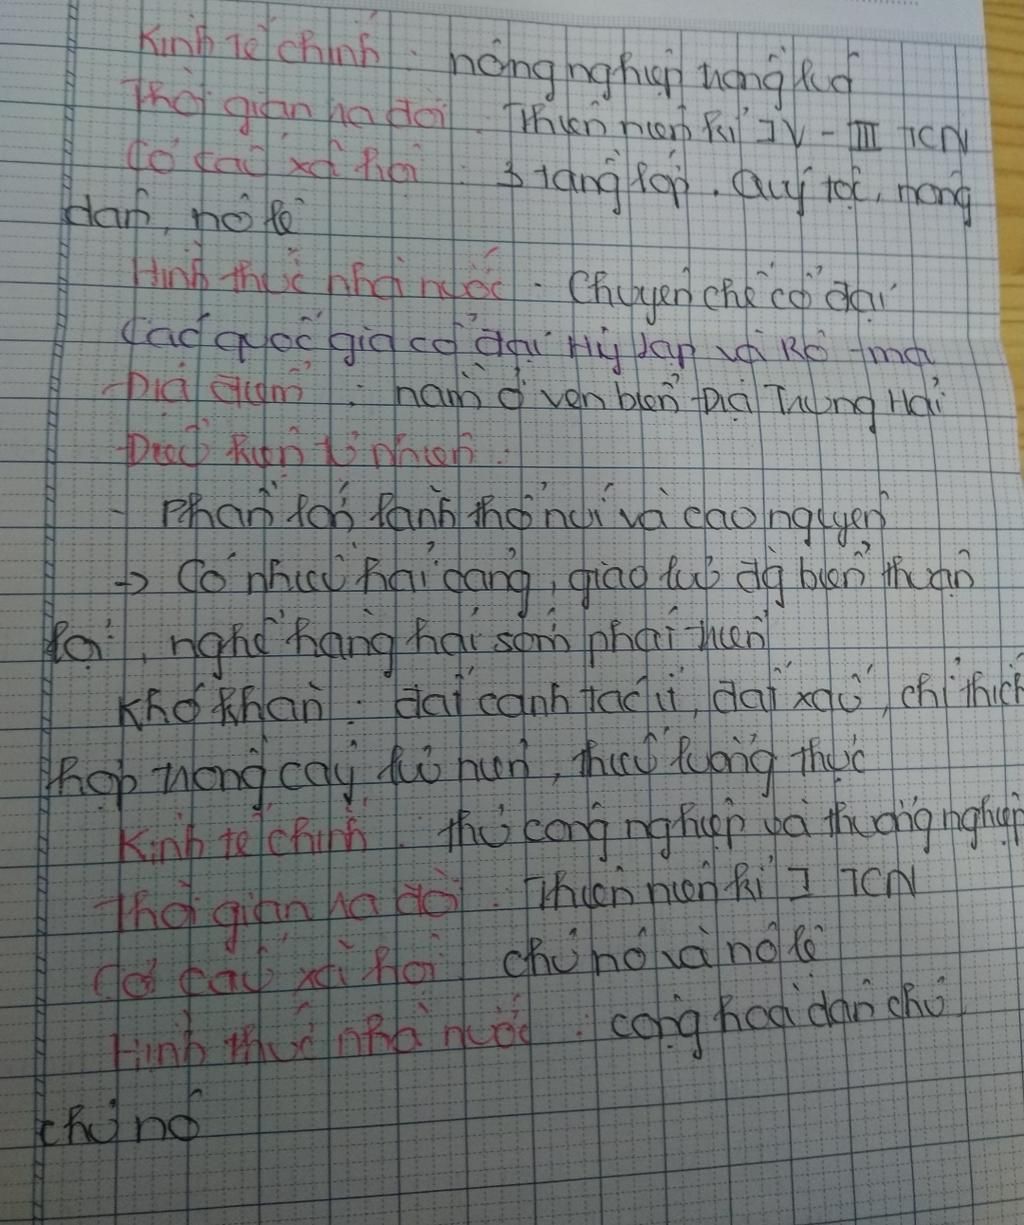 Kinh tế chính : nông nghiệp trồng lúa
Thời gian ra đời : Thiên niên kỉ IV - III TCN
Cơ cấu xã hội : 3 tầng lớp : quý tộc, nông
dân, nô lệ
Hình thức nhà nước : Chuyên chế cổ đại
Các quốc gia cổ đại Hy Lạp và Rô-ma
Địa điểm : nằm ở ven biển Địa Trung Hải
Điều kiện tự nhiên :
- Phần lớn lãnh thổ núi và cao nguyên
→ Có nhiều hải cảng, giao lưu đg biển thuận
lợi, nghề hàng hải sớm phát triển
Khó khăn : đất canh tác ít, đất xấu, chỉ thích
hợp trồng cây lưu niên, thiếu lương thực
Kinh tế chính : thủ công nghiệp và thương nghiệp
Thời gian ra đời : Thiên niên kỉ I TCN
Cơ cấu xã hội chủ nô và nô lệ
Hình thức nhà nước : cộng hoà dân chủ
chủ nô